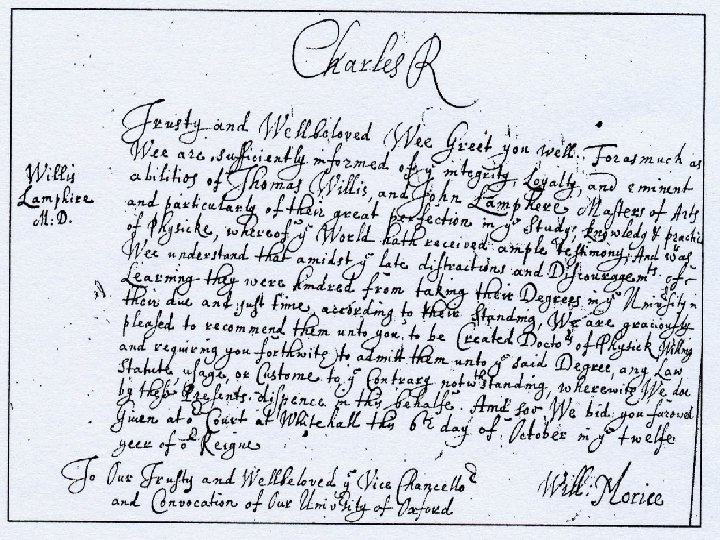 Charles R
Trusty and Wellbeloved Wee Greet you well. Forasmuch as
Wee are sufficiently informed of yᵉ integrity, Loyalty, and eminent
Willis
Lamphire
M: D.
abilities of Thomas Willis, and John Lamphere Masters of Arts
and particularly of their great perfection in yᵉ Study, knowledg & practice
of Physicke, whereof yᵉ World hath received ample testimony, And whereas
Wee understand that amidst yᵉ late distractions and Discouragemᵗˢ of
Learning they were hindred from taking their Degrees in yᵉ University in
their due and just time, according to their standing, We are graciously
pleased to recommend them unto you, to be Created Doctoʳˢ of Physick, Willing
and requiring you forthwith to admitt them unto yᵉ said Degree, any Law
Statute usage, or Custome to yᵉ Contrary notwᵗʰstanding, wherewith We doe
by these Presents dispence in this behalfe. And soe We bid you farewel
Given at oʳ Court at Whitehall this 6ᵗʰ day of October in yᵉ twelfe
yeer of oʳ Reigne
To Our Trusty and Wellbeloved yᵉ Vice Chancelloʳ
and Convocation of Our University of Oxford
Will: Morice